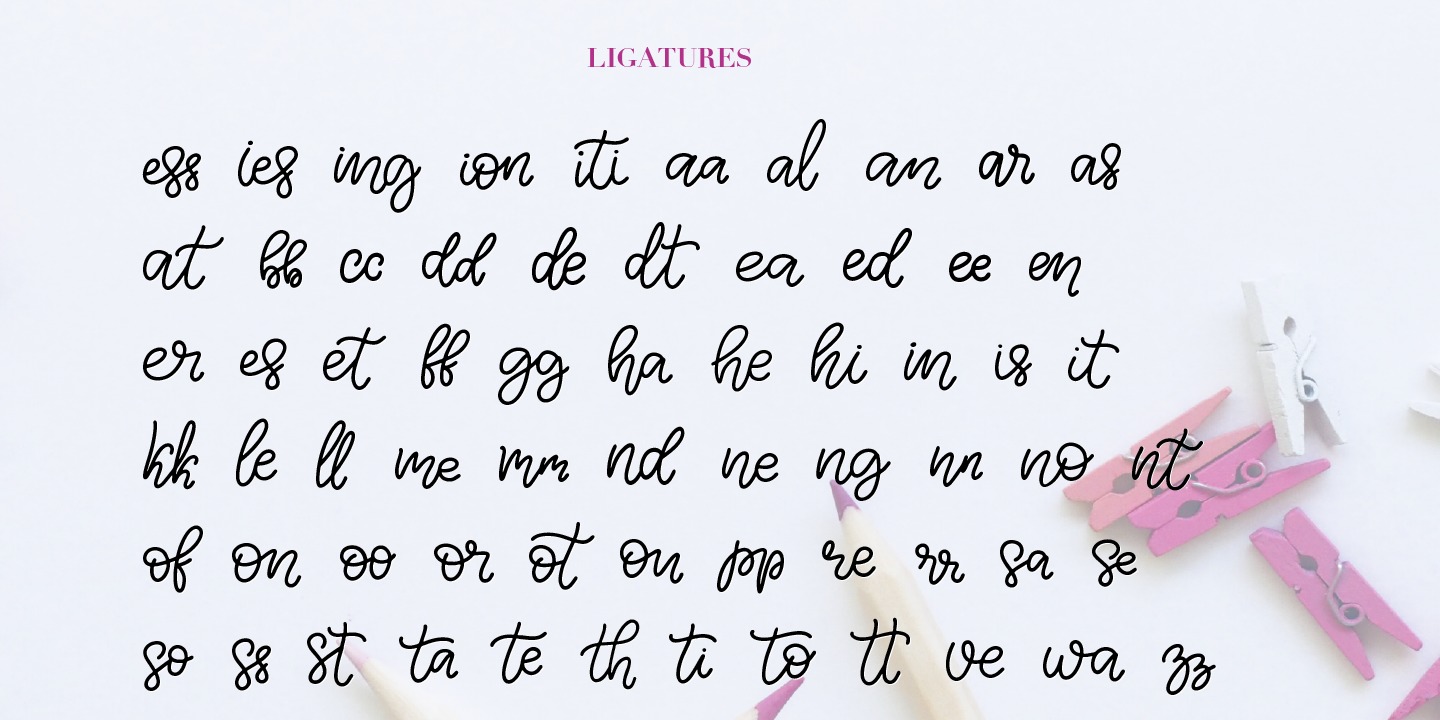 LIGATURES
ess ies ing ion iti aa al an ar as
at bb cc dd de dt ea ed ee en
er es et ff gg ha he hi in is it
kk le ll me mm nd ne ng nn no nt
of on oo or ot ou pp re rr sa se
so ss st ta te th ti to tt ve wa zz